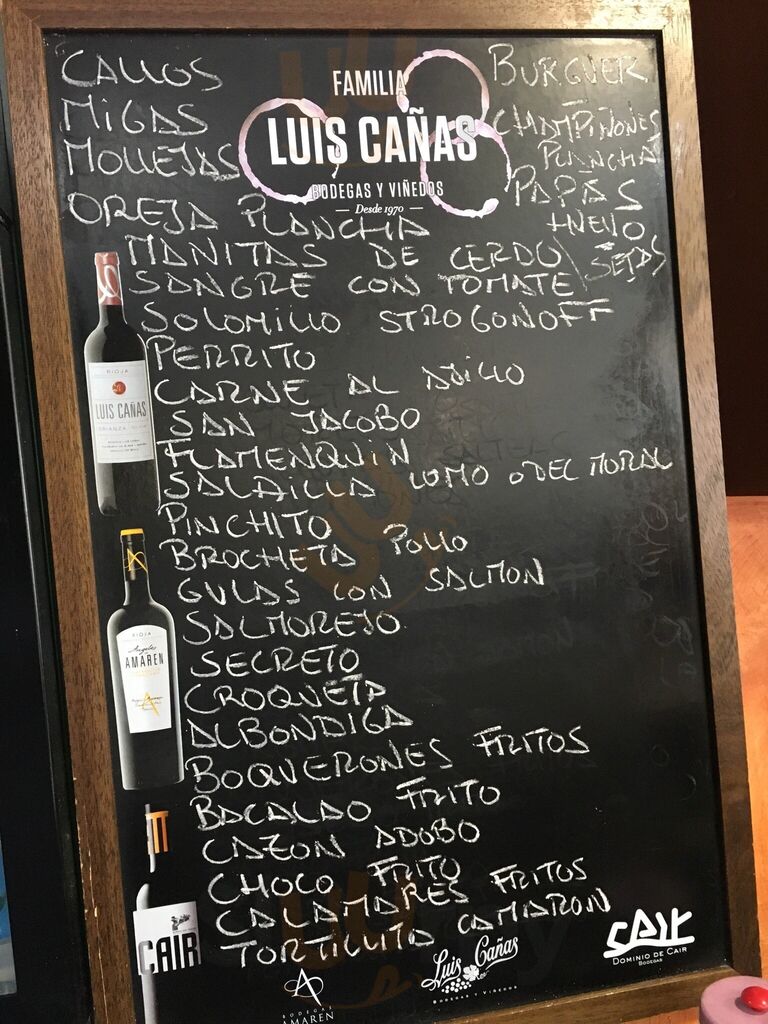 CALLOS
MIGAS
MOLLEJAS
OREJA PLANCHA
FAMILIA
LUIS CAÑAS
BODEGAS Y VIÑEDOS
Desde 1970
BURGUER
CHAMPIÑONES
PLANCHA
PAPAS
+HUEVO
MANITAS DE CERDO / SETAS
SANGRE CON TOMATE
SOLOMILLO STROGONOFF
PERRITO
CARNE AL AJILLO
SAN JACOBO
FLAMENQUIN
SALAILLA LOMO O DEL MORAL
PINCHITO
BROCHETA POLLO
GULAS CON SALMON
SALMOREJO
SECRETO
CROQUETA
ALBONDIGA
BOQUERONES FRITOS
BACALAO FRITO
CAZON ADOBO
CHOCO FRITO
CALAMARES FRITOS
TORTILLITA CAMARON
RIOJA
LUIS CAÑAS
CRIANZA
RIOJA
Angeles de
AMAREN
CAIR
BODEGAS
AMAREN
Luis Cañas
BODEGAS Y VIÑEDOS
CAIR
DOMINIO DE CAIR
BODEGAS